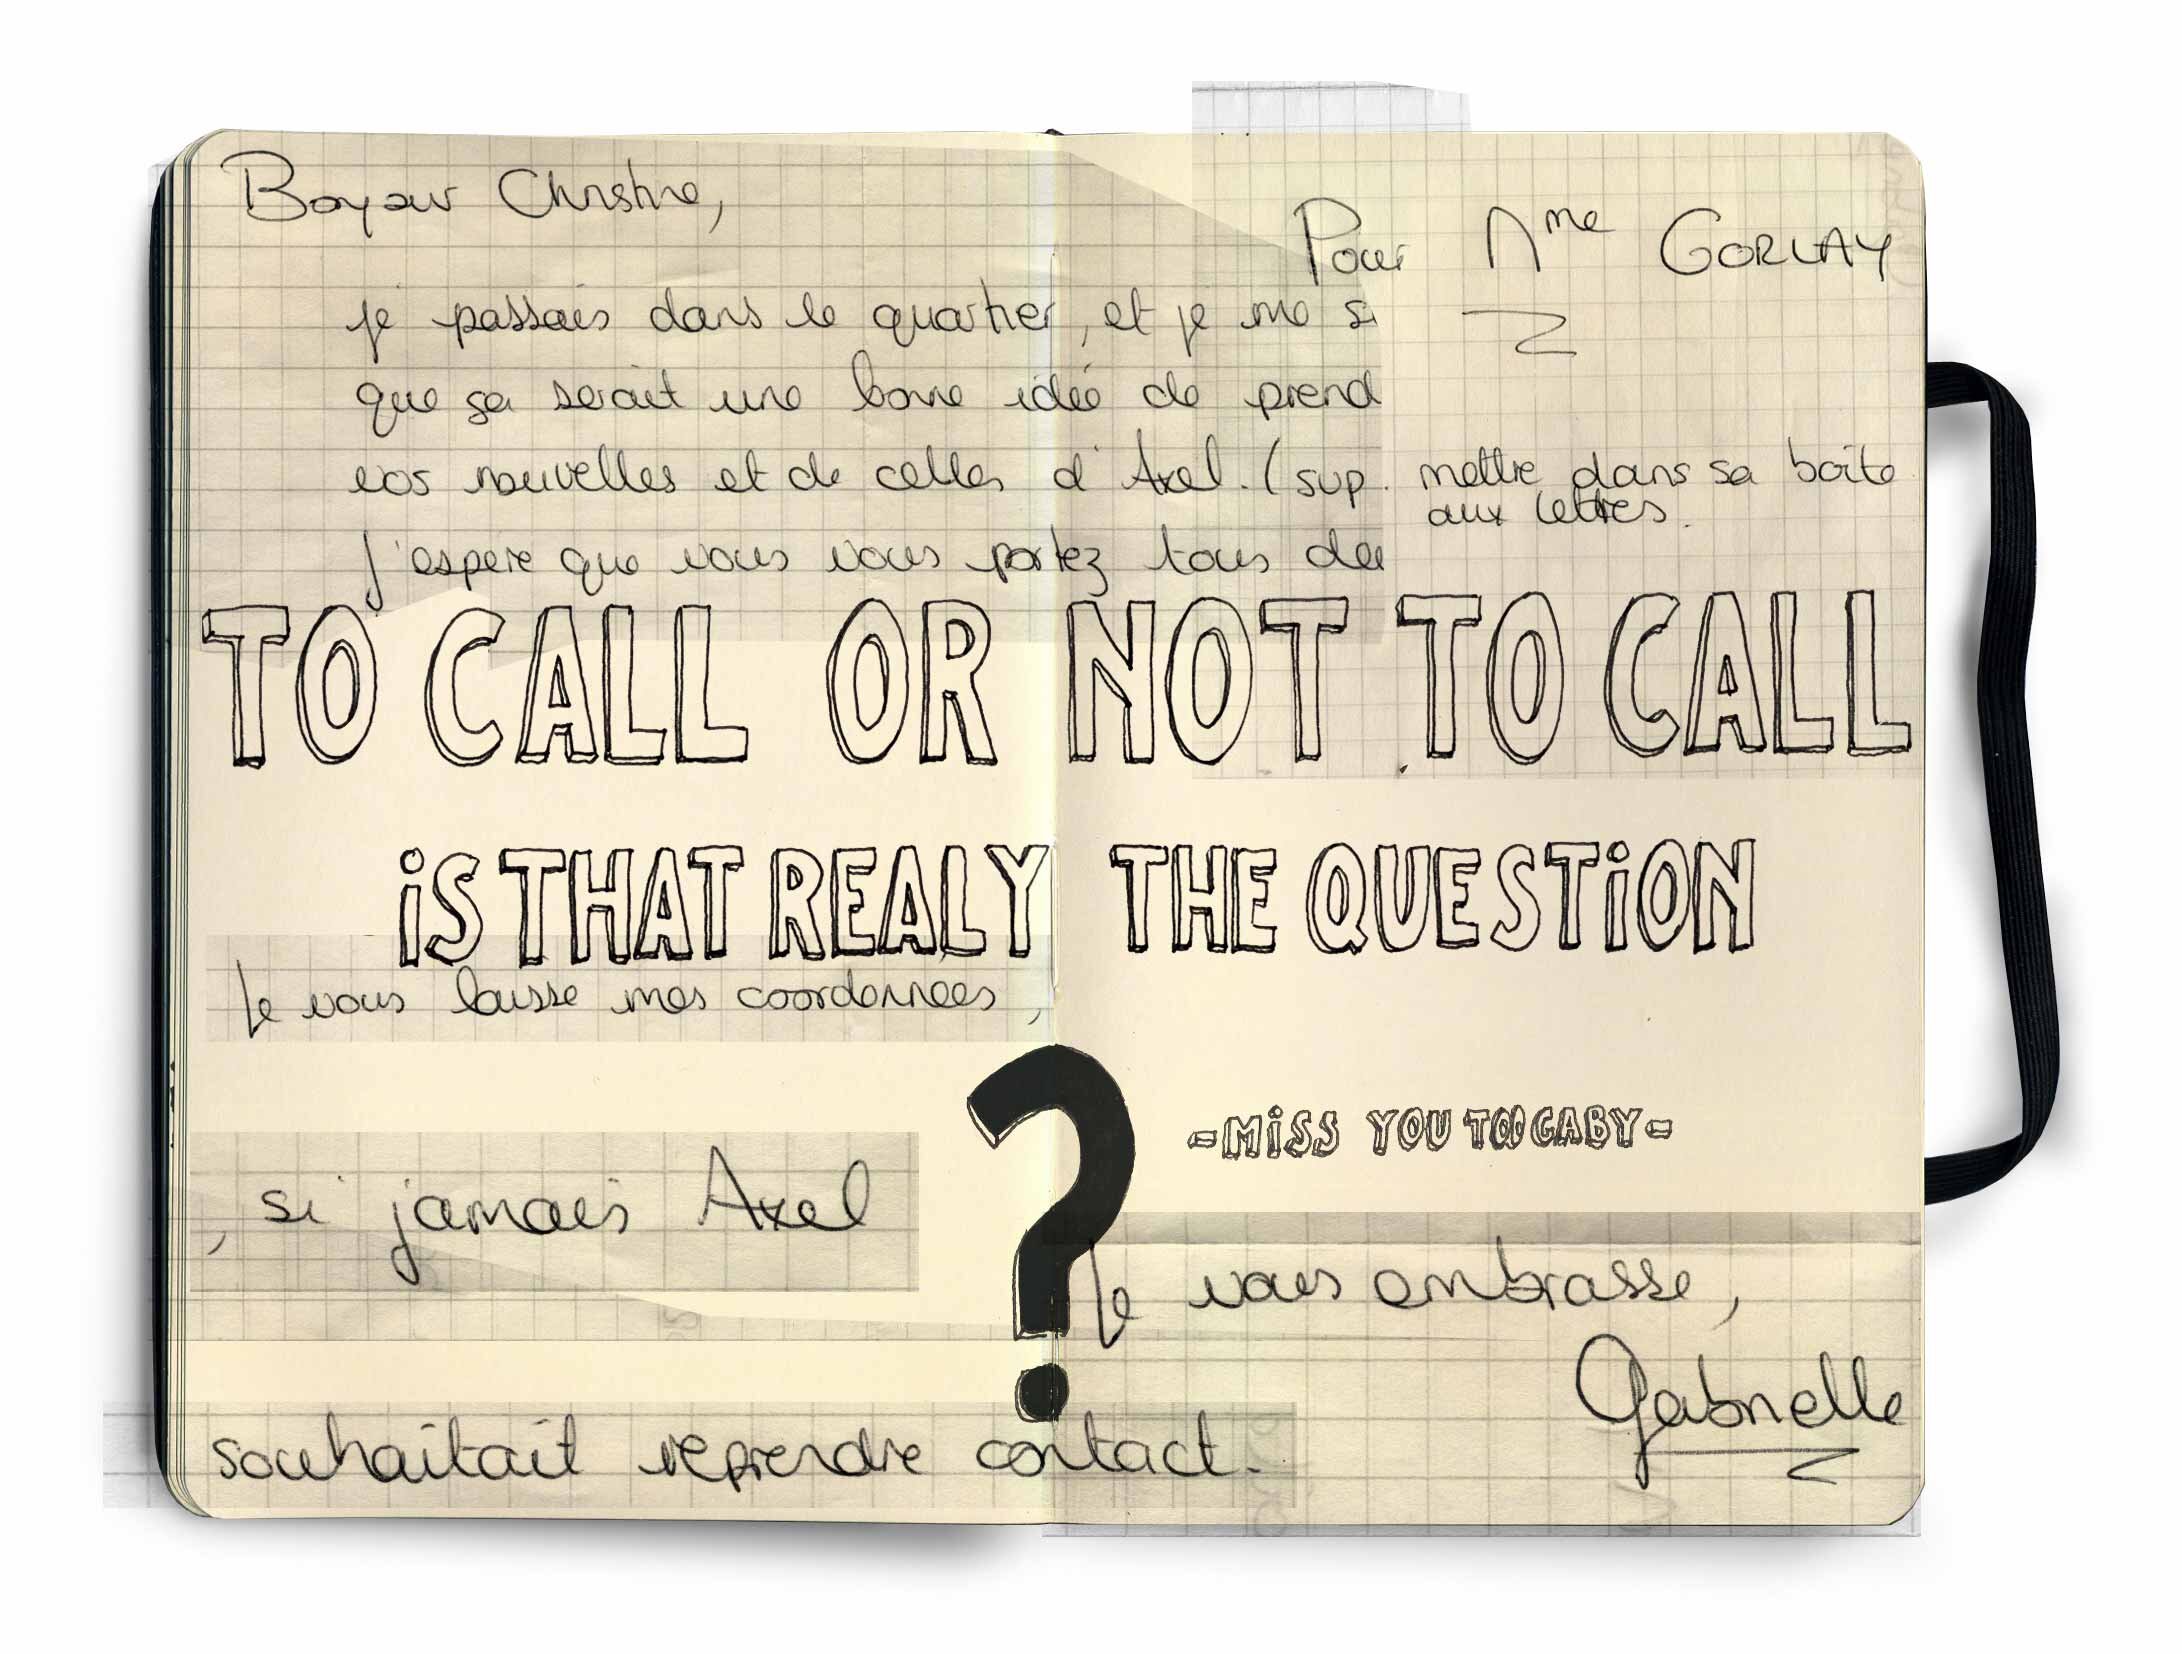 Bonjour Christine,
Pour Mme GORLAY
je passais dans le quartier, et je me
que ça serait une bonne idée de prend
vos nouvelles et de celles d'Axel. (sup.
mettre dans sa boîte
aux lettres.
J'espère que vous vous portez tous
TO CALL OR NOT TO CALL
iS THAT REALY THE QUESTiON
Je vous laisse mes coordonnées,
?
-MiSS YOU TOO GABY-
, si jamais Axel
Je vous embrasse,
Gabrielle
souhaitait reprendre contact.